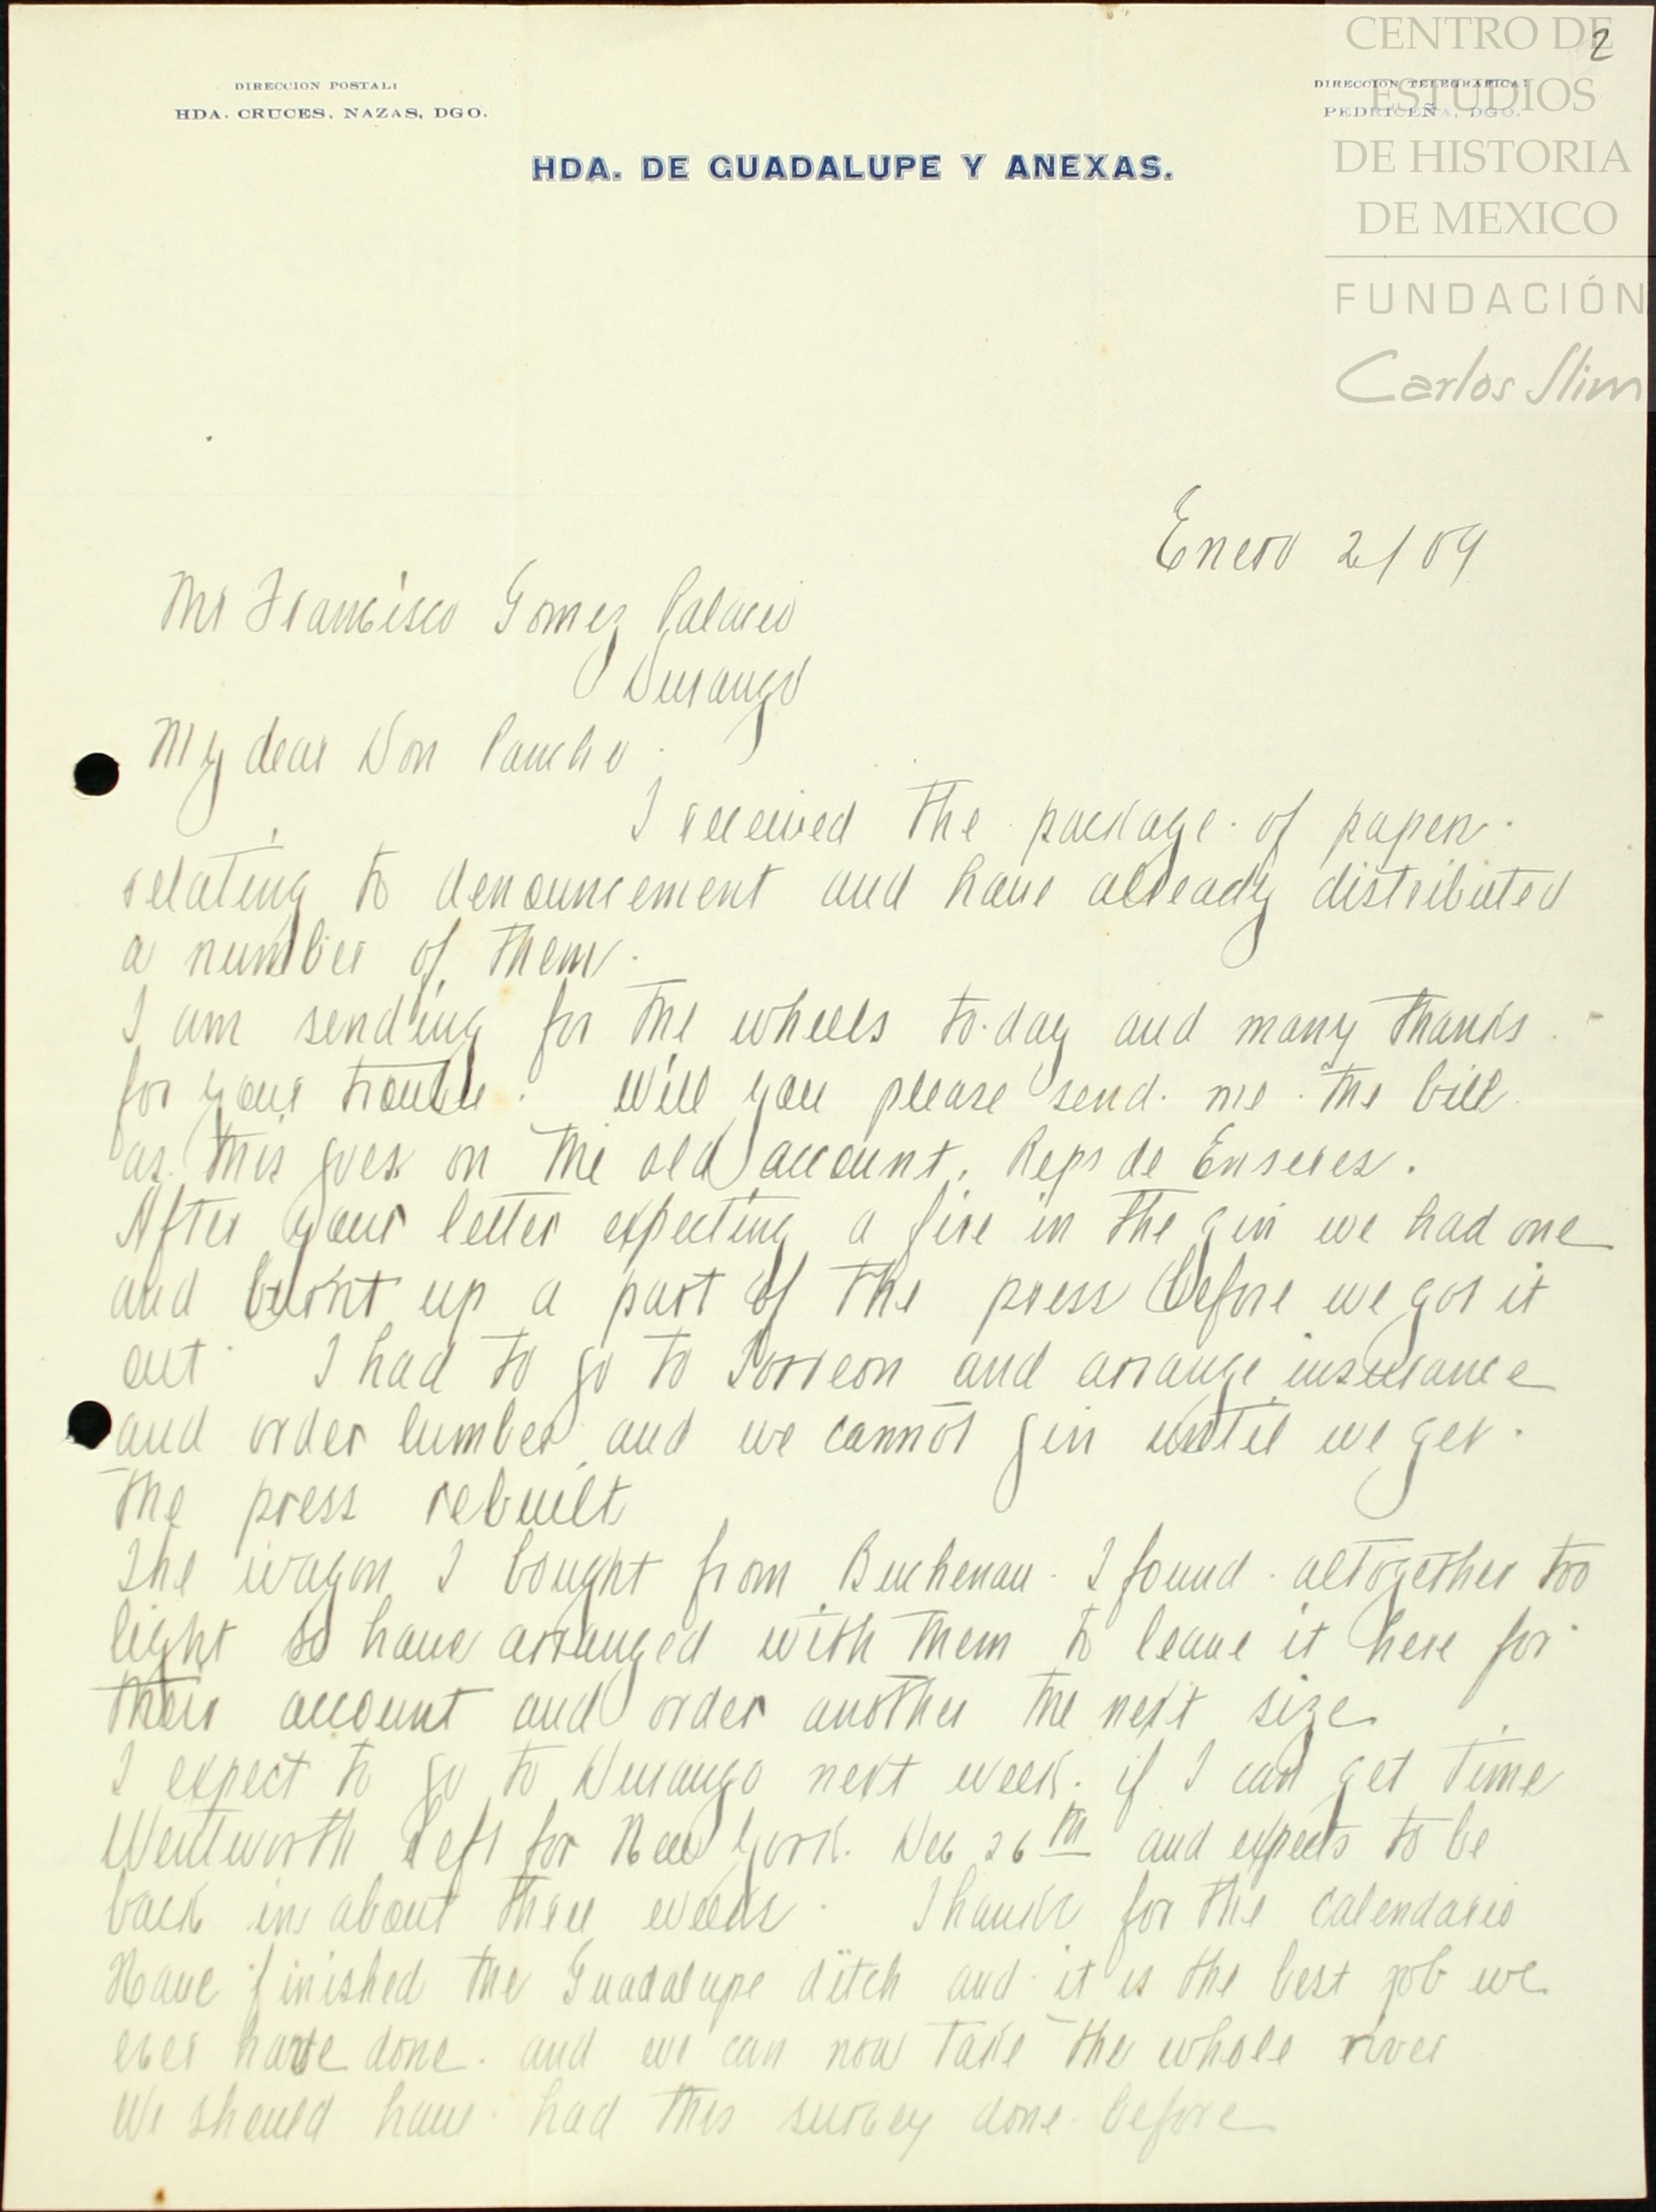 CENTRO DE
ESTUDIOS
DE HISTORIA
DE MEXICO
FUNDACIÓN
Carlos Slim
2
DIRECCION POSTAL:
HDA. CRUCES, NAZAS, DGO.
DIRECCION TELEGRAFICA:
PEDRICEÑA, DGO.
HDA. DE GUADALUPE Y ANEXAS.
Enero 2/09
Mr Francisco Gomez Palacio
Durango
My dear Don Pancho.
I received the package of papers
relating to denouncement and have already distributed
a number of them.
I am sending for the wheels to-day and many thanks
for your trouble. Will you please send me the bill
as this goes on the old account, Reps de Enseres.
After your letter expecting a fire in the gin we had one
and burnt up a part of the press before we got it
out. I had to go to Torreon and arrange insurance
and order lumber and we cannot gin until we get
the press rebuilt
The wagon I bought from Buchenau I found altogether too
light so have arranged with them to leave it here for
their account and order another the next size
I expect to go to Durango next week if I can get time
Wentworth left for New York Dec 26th and expects to be
back in about three weeks. Thanks for the calendario
Have finished the Guadalupe ditch and it is the best job we
ever have done and we can now take the whole river
We should have had this survey done before